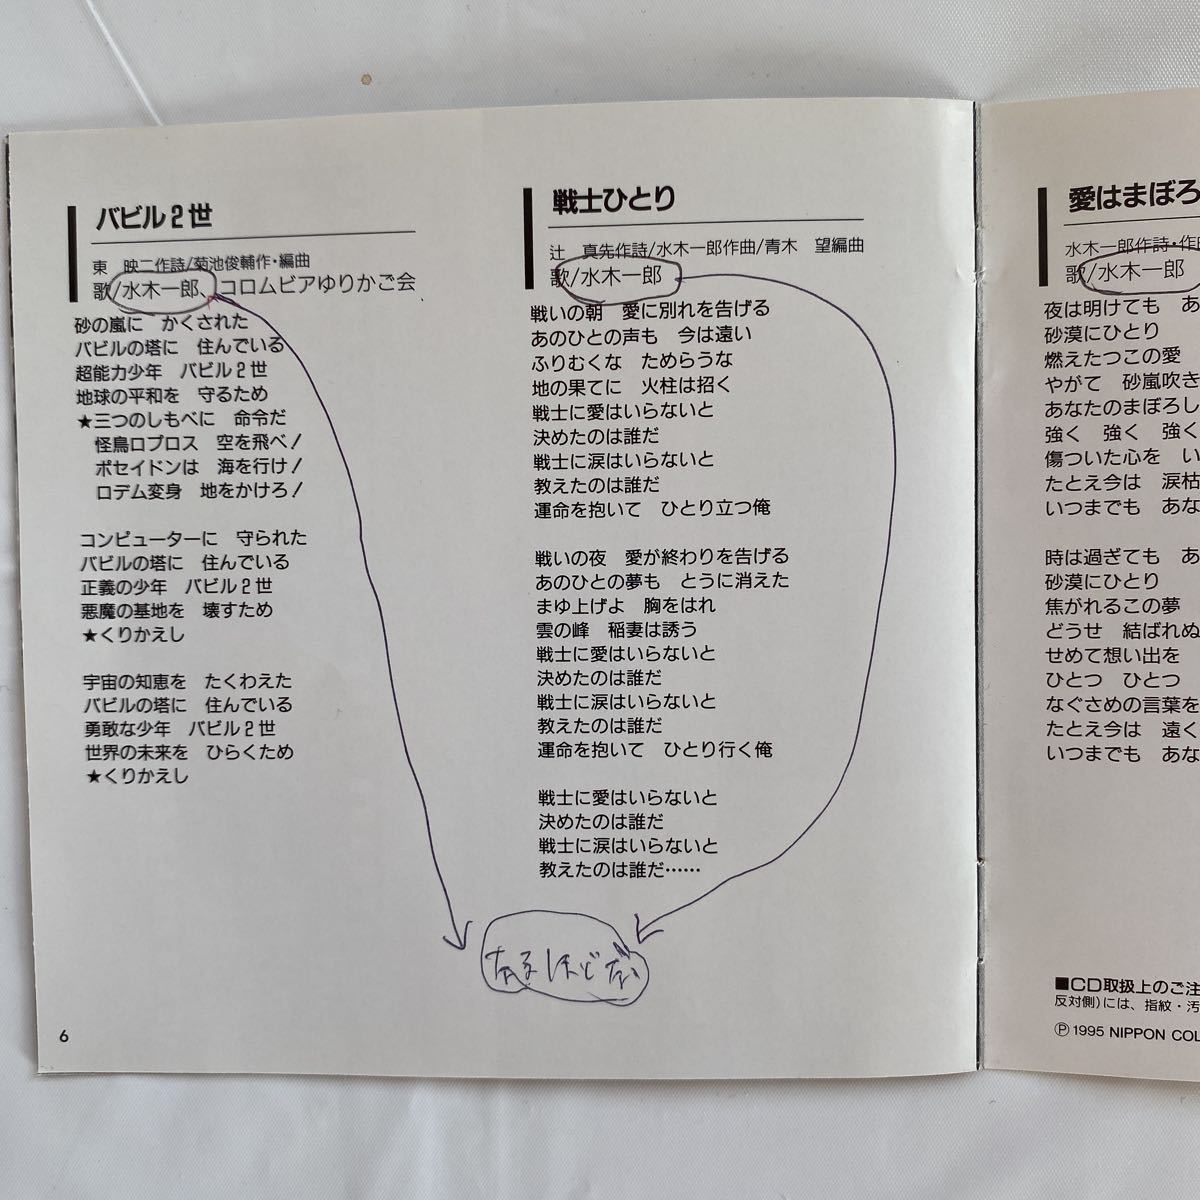 バビル2世
東　映二作詩/菊池俊輔作・編曲
歌/水木一郎、コロムビアゆりかご会
砂の嵐に　かくされた
バビルの塔に　住んでいる
超能力少年　バビル2世
地球の平和を　守るため
★三つのしもべに　命令だ
怪鳥ロプロス　空を飛べ！
ポセイドンは　海を行け！
ロデム変身　地をかけろ！
コンピューターに　守られた
バビルの塔に　住んでいる
正義の少年　バビル2世
悪魔の基地を　壊すため
★くりかえし
宇宙の知恵を　たくわえた
バビルの塔に　住んでいる
勇敢な少年　バビル2世
世界の未来を　ひらくため
★くりかえし
6
戦士ひとり
辻　真先作詩/水木一郎作曲/青木　望編曲
歌/水木一郎
戦いの朝　愛に別れを告げる
あのひとの声も　今は遠い
ふりむくな　ためらうな
地の果てに　火柱は招く
戦士に愛はいらないと
決めたのは誰だ
戦士に涙はいらないと
教えたのは誰だ
運命を抱いて　ひとり立つ俺
戦いの夜　愛が終わりを告げる
あのひとの夢も　とうに消えた
まゆ上げよ　胸をはれ
雲の峰　稲妻は誘う
戦士に愛はいらないと
決めたのは誰だ
戦士に涙はいらないと
教えたのは誰だ
運命を抱いて　ひとり行く俺
戦士に愛はいらないと
決めたのは誰だ
戦士に涙はいらないと
教えたのは誰だ……
なるほどな
愛はまぼろ
水木一郎作詩・作曲
歌/水木一郎
夜は明けても　あ
砂漠にひとり
燃えたつこの愛
やがて　砂嵐吹き
あなたのまぼろし
強く　強く　強く
傷ついた心を　い
たとえ今は　涙枯
いつまでも　あな
時は過ぎても　あ
砂漠にひとり
焦がれるこの夢
どうせ　結ばれぬ
せめて想い出を
ひとつ　ひとつ
なぐさめの言葉を
たとえ今は　遠く
いつまでも　あな
■CD取扱上のご注
反対側)には、指紋・汚
Ⓟ 1995 NIPPON COL